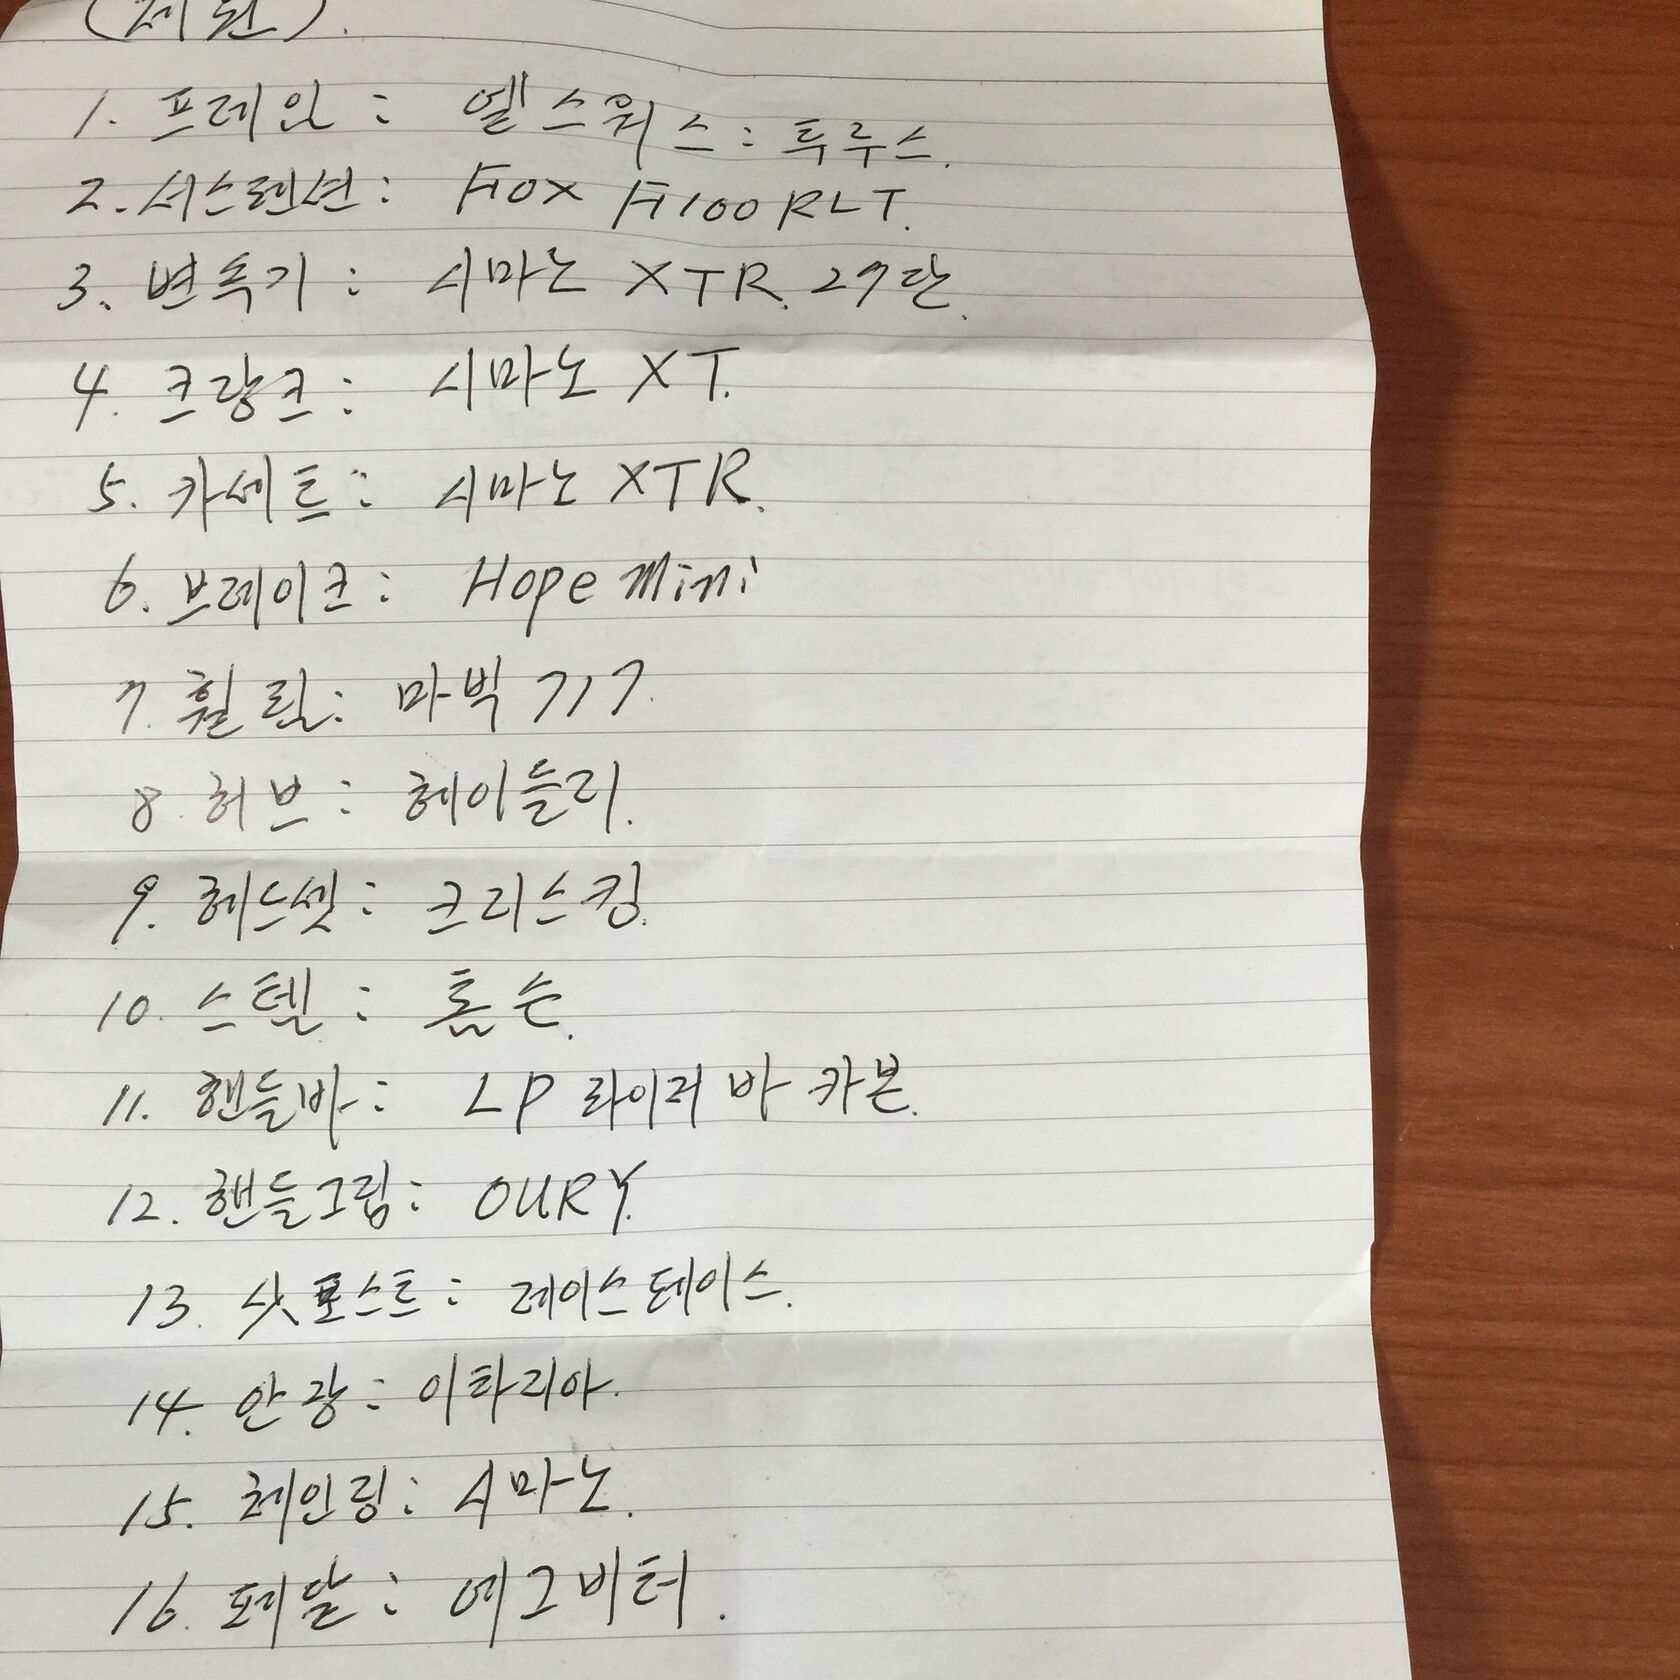 (제원).
1. 프레임 : 엘스워스 : 투루스.
2. 서스펜션 : FOX F100RLT.
3. 변속기 : 시마노 XTR. 27단.
4. 크랑크 : 시마노 XT.
5. 카세트 : 시마노 XTR.
6. 브레이크 : Hope mini
7. 휠 림 : 마빅 717.
8. 허브 : 헤이들리.
9. 헤드셋 : 크리스킹.
10. 스템 : 톰슨.
11. 핸들바 : LP 라이저 바 카본.
12. 핸들그립 : OURY.
13. 싯포스트 : 레이스페이스.
14. 안장 : 이타리아.
15. 체인링 : 시마노.
16. 페달 : 에그비터.